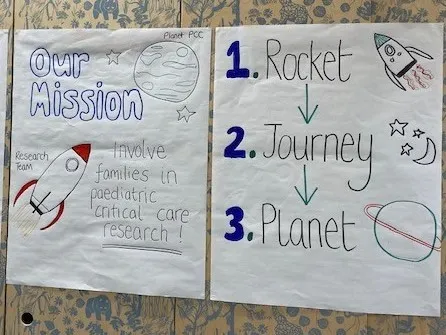 Our
Mission
Planet PCC
Research
Team
Involve
families in
paediatric
critical care
research!
1. Rocket
2. Journey
3. Planet